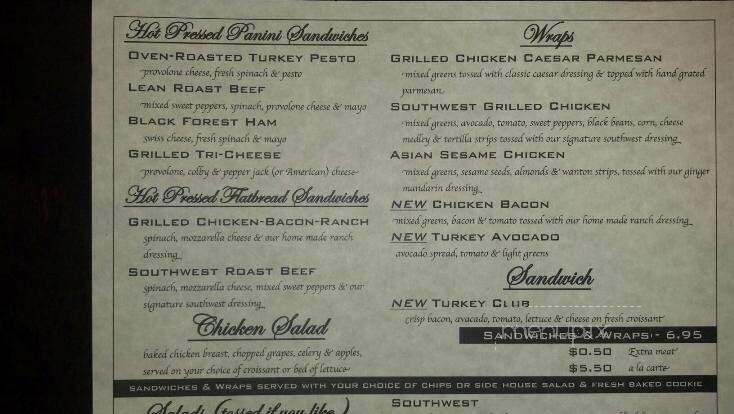 Hot Pressed Panini Sandwiches
OVEN-ROASTED TURKEY PESTO
provolone cheese, fresh spinach & pesto
LEAN ROAST BEEF
mixed sweet peppers, spinach, provolone cheese & mayo
BLACK FOREST HAM
swiss cheese, fresh spinach & mayo
GRILLED TRI-CHEESE
provolone, colby & pepper jack (or American) cheese
Hot Pressed Flatbread Sandwiches
GRILLED CHICKEN-BACON-RANCH
spinach, mozzarella cheese & our home made ranch
dressing
SOUTHWEST ROAST BEEF
spinach, mozzarella cheese, mixed sweet peppers & our
signature southwest dressing
Chicken Salad
baked chicken breast, chopped grapes, celery & apples,
served on your choice of croissant or bed of lettuce
Wraps
GRILLED CHICKEN CAESAR PARMESAN
mixed greens tossed with classic caesar dressing & topped with hand grated
parmesan
SOUTHWEST GRILLED CHICKEN
mixed greens, avocado, tomato, sweet peppers, black beans, corn, cheese
medley & tortilla strips tossed with our signature southwest dressing
ASIAN SESAME CHICKEN
mixed greens, sesame seeds, almonds & wanton strips, tossed with our ginger
mandarin dressing
NEW CHICKEN BACON
mixed greens, bacon & tomato tossed with our home made ranch dressing
NEW TURKEY AVOCADO
avocado spread, tomato & light greens
Sandwich
NEW TURKEY CLUB
crisp bacon, avacado, tomato, lettuce & cheese on fresh croissant
menupix
SANDWICHES & WRAPS - 6.95
$0.50 Extra meat
$5.50 a la carte
SANDWICHES & WRAPS SERVED WITH YOUR CHOICE OF CHIPS OR SIDE HOUSE SALAD & FRESH BAKED COOKIE
Salads (tossed if you like)
SOUTHWEST